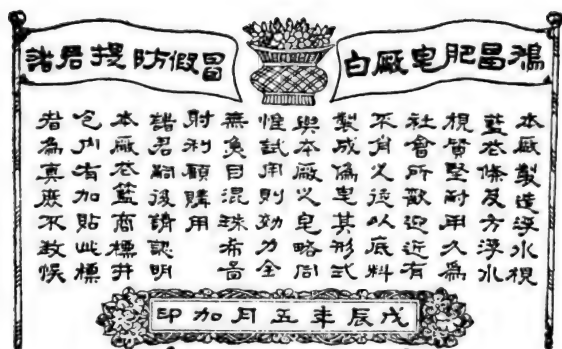 鴻昌肥皂廠白
諸君提防假冒
本廠製造浮水梘
藍花條及方浮水
梘質堅耐用久為
社會所歡迎近有
不肖之徒以底料
製成偽皂其形式
與本廠之皂略同
惟試用則効力全
無魚目混珠希啚
射利顧購用
諸君嗣後請認明
本廠花籃商標并
包內有加貼此標
者為真庶不致悞
戊辰年五月加印